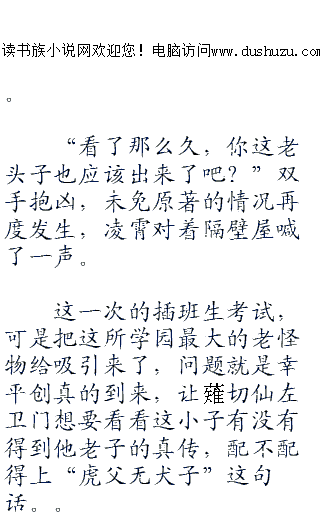 读书族小说网欢迎您！电脑访问www.dushuzu.com
。
“看了那么久，你这老
头子也应该出来了吧？”双
手抱凶，未免原著的情况再
度发生，凌霄对着隔壁屋喊
了一声。
这一次的插班生考试，
可是把这所学园最大的老怪
物给吸引来了，问题就是幸
平创真的到来，让薙切仙左
卫门想要看看这小子有没有
得到他老子的真传，配不配
得上“虎父无犬子”这句
话。。